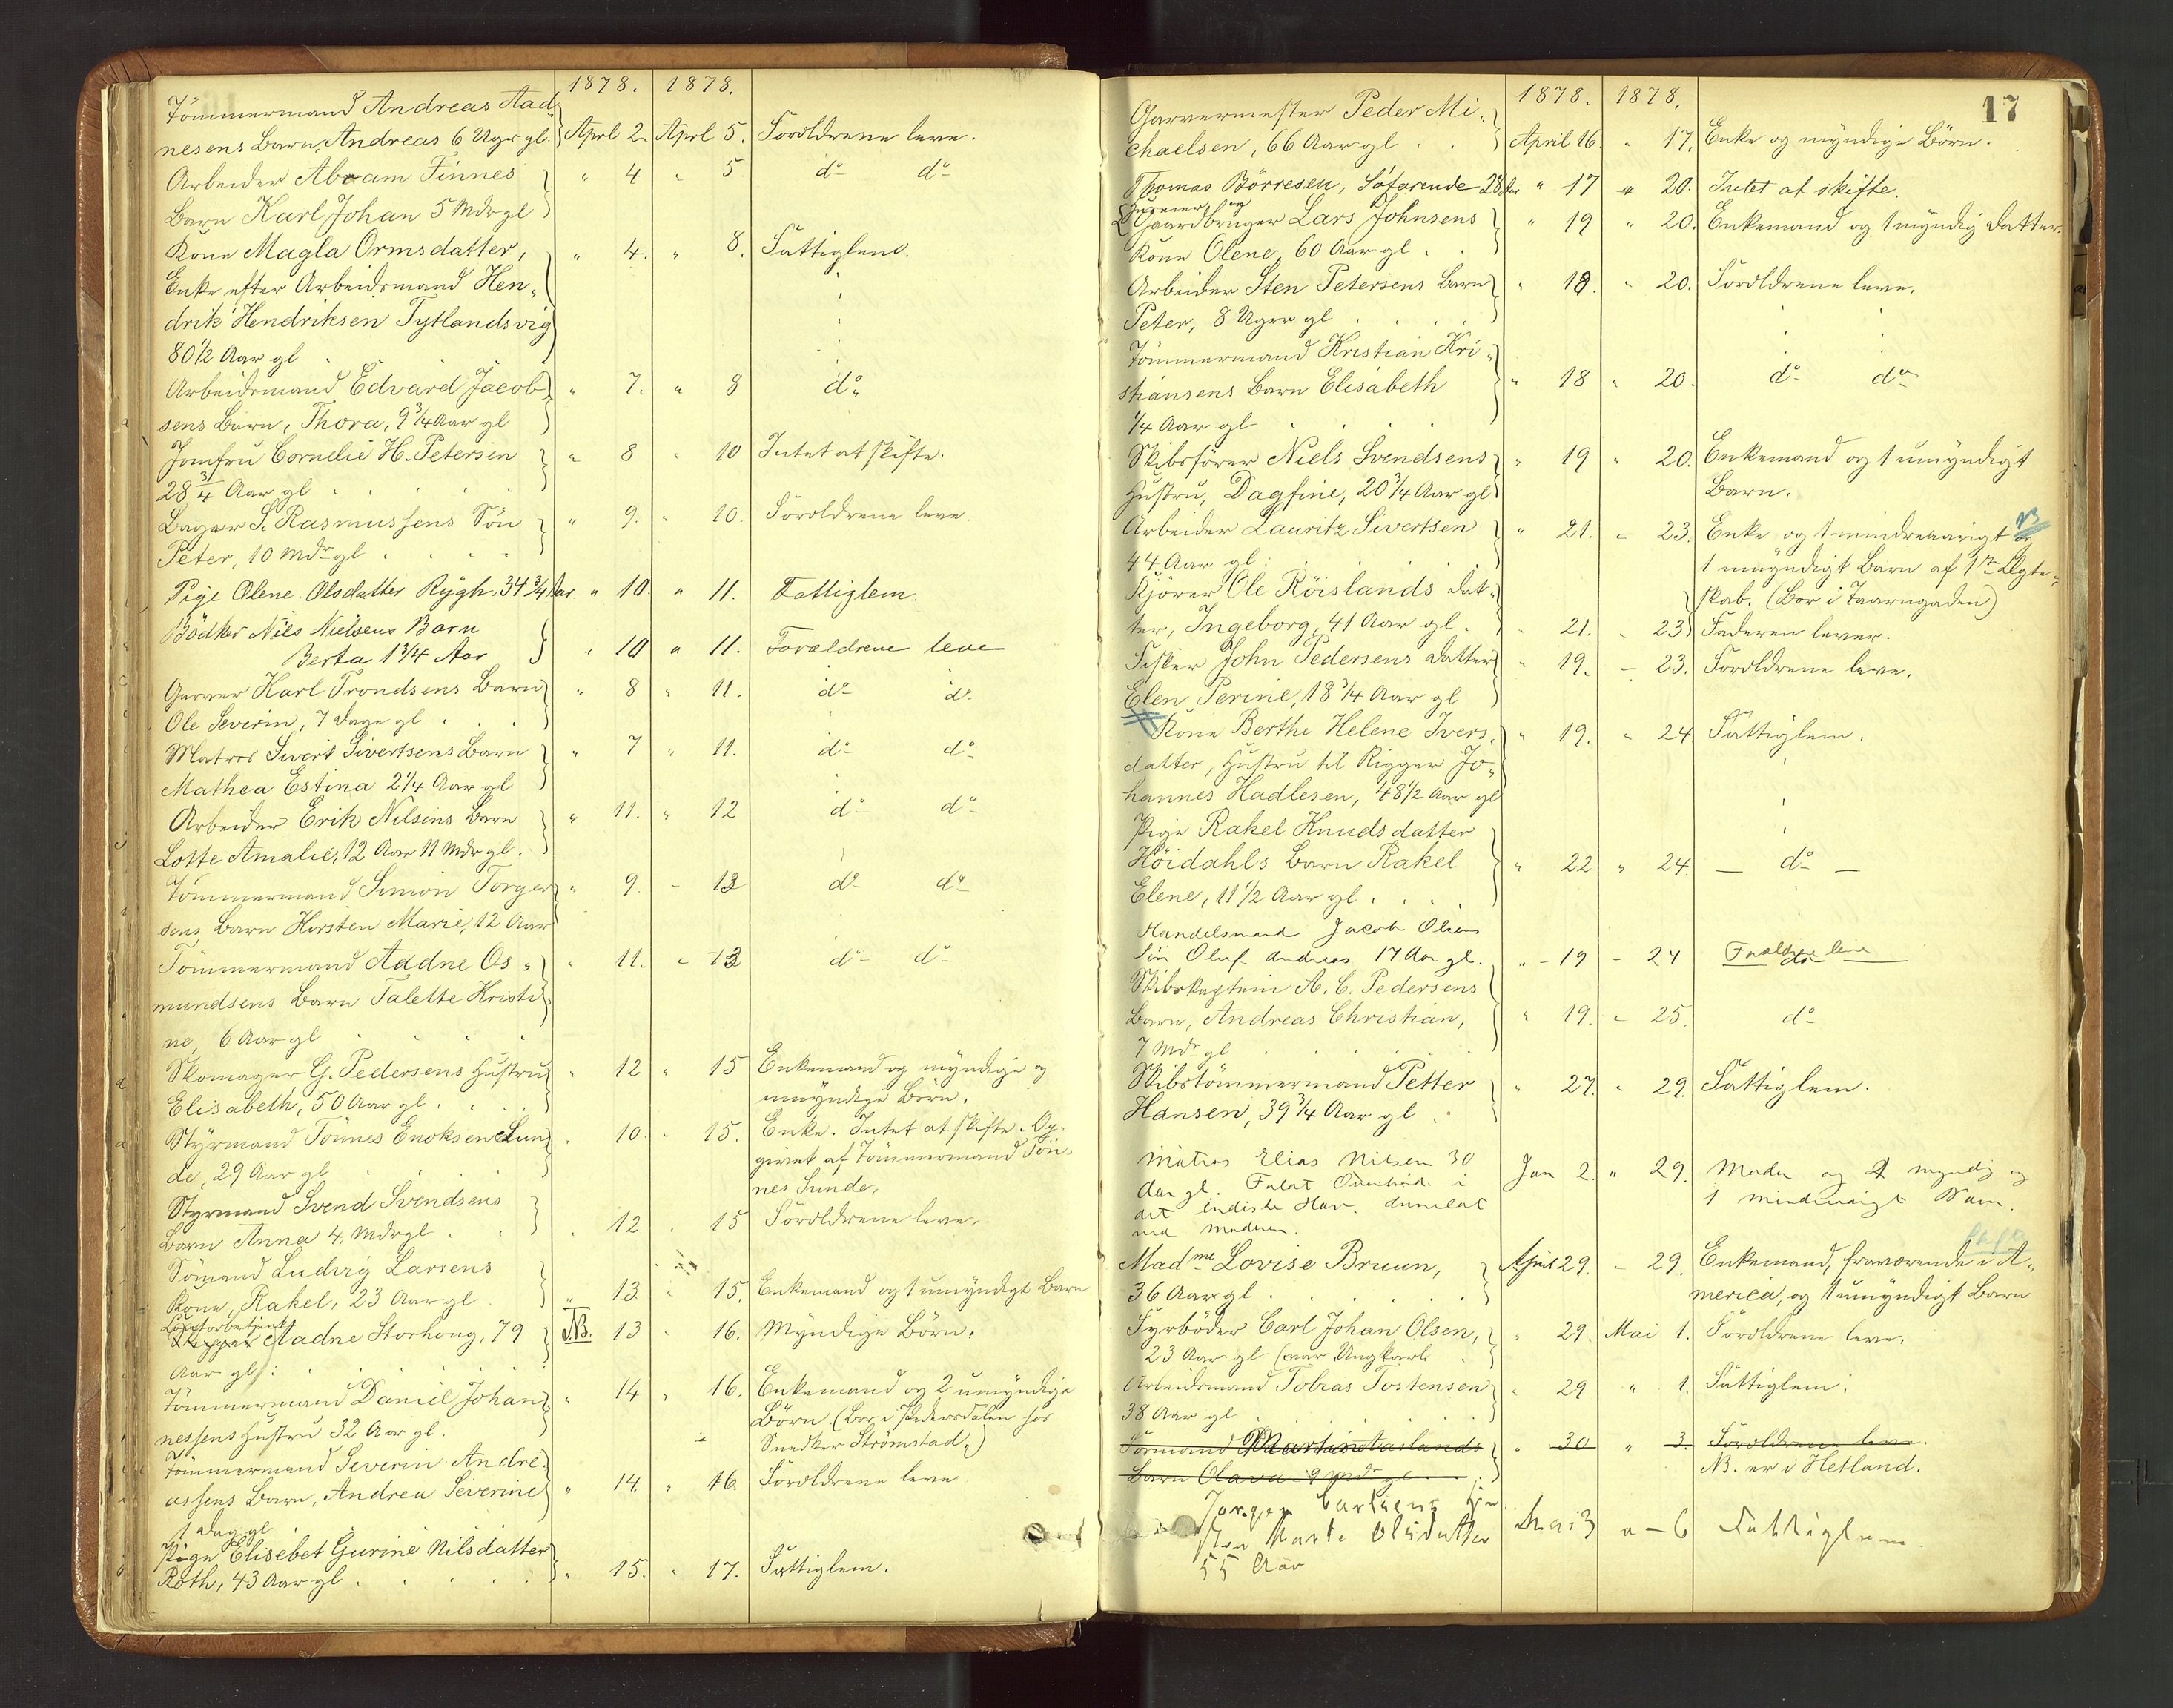 1878. 1878.
Tömmermand Andreas Aad„
nesens Barn, Andreas 6 Uger gl. Aprl 2. Aprl 5. Foreldrene leve.
Arbeider Abram Tinnes „ 4 „ 5 do do
Barn Karl Johan 5 Mdr gl
Kone Magla Ormsdatter, „ 4. „ 8. Fattiglem.
Enke efter Arbeidsmand Hen„
drik Hendriksen Tytlandsvig
80 1/2 Aar gl .
Arbeidsmand Edvard Jacob „ 7. „ 8 do
sens Barn, Thora, 9 3/4 Aar gl
Jomfru Cornelie H. Petersen „ 8 „ 10 Intet at skifte.
28 3/4 Aar gl
Bager S. Rasmussens Sön „ 9. „ 10. Foreldrene leve.
Peter, 10 Mdr gl
Pige Olene Olsdatter Rygh, 34 3/4 Aar. „ 10. „ 11. Fattiglem.
Bödker Nils Nielsens Barn
Berta 1 3/4 Aar „ 10 „ 11. Forældrene leve
Garver Karl Trondsens Barn „ 8 „ 11. do do
Ole Severin, 7 Dage gl .
Matros Sivert Sivertsens Barn „ 7 „ 11. do do
Mathea Estina 2 1/4 Aar gl
Arbeider Erik Nilsens Barn „ 11. „ 12 do do
Lotte Amalie, 12 Aar 11 Mdr gl.
Tömmermand Simon Torger „ 9. - 13 do do
sens Barn Kirsten Marie, 12 Aar
Tömmermand Aadne Os„ „ 11. „ 13 do do
mundsens Barn Talette Kristi
ne, 6 Aar gl
Skomager G. Pedersens Hustru „ 12 „ 15 Enkemand og myndige og
Elisabeth, 50 Aar gl. umyndige Börn.
Styrmand Tönnes Enoksen Lun „ 10. „ 15. Enke. Intet at skifte. Op„
de, 29 Aar gl givet af Tömmermand Tön„
nes Lunde.
Styrmand Svend Svendsens
Barn Anna 4 Mdr gl . „ 12 „ 15 Foreldrene leve.
Sömand Ludvig Larsens
Kone, Rakel, 23 Aar gl „ 13 „ 15. Enkemand og 1 umyndigt Barn
Aadne Storhoug, 79 NB. 13 „ 16. Myndige Börn.
Aar gl.
Tömmermand Daniel Johan „ 14 „ 16. Enkemand og 2 umyndige
nessens Hustru 32 Aar gl. Börn. (Bor i Pedersdalen hos
Snedker Strömstad.)
Tömmermand Severin Andre„
assens Barn, Andrea Severine „ 14. „ 16. Foreldrene leve
1 Dag gl
Pige Elisebet Gurine Nilsdatter
Roth, 43 Aar gl . „ 15. „ 17. Fattiglem.
17
1878. 1878.
Garvermester Peder Mi„
chaelsen, 66 Aar gl . April 16. „ 17. Enke og myndige Börn.
Thomas Börresen, Söfarende 28 Aar „ 17 „ 20. Intet at skifte.
Huseier og
Gaardbruger Lars Johnsens „ 19 „ 20. Enkemand og 1 myndig Datter.
Kone Olene, 60 Aar gl .
Arbeider Sten Petersens Barn „ 18. „ 20. Foreldrene leve.
Peter, 8 Uger gl
Tömmermand Kristian Kri„
stiansens Barn Elisabeth „ 18 „ 20. do do
1/4 Aar gl
Skibsförer Niels Svendsens „ 19 „ 20. Enkemand og 1 umyndigt
Hustru, Dagfine, 20 3/4 Aar gl Barn.
Arbeider Lauritz Sivertsen „ 21. „ 23. Enke og 1 mindreaarigt og
44 Aar gl. 1 umyndigt Barn af 1ste Ægte„
Kjörer Ole Röislands Dat„ skab. (Bor i Taarngaden)
ter, Ingeborg, 41 Aar gl. „ 21. „ 23 Faderen lever.
Fisker John Pedersens Datter „ 19. - 23. Foreldrene leve.
Elen Perine, 18 3/4 Aar gl
Kone Berthe Helene Ivers„ „ 19. „ 24 Fattiglem.
datter, Hustru til Rigger Jo„
hannes Hadlesen, 48 1/2 Aar gl
Pige Rakel Knudsdatter
Höidahls Barn Rakel „ 22 „ 24. — do —
Elene, 11 1/2 Aar gl .
Handelsmand Jacob Olsens
Sön Oluf Andreas 17 Aar gl. „ - 19 - 24
Skibskaptein A. C. Pedersens
Barn, Andreas Christian, „ 19. „ 25. do
7 Mdr gl
Skibstömmermand Petter „ 27. „ 29. Fattiglem.
Hansen, 39 3/4 Aar gl .
Matros Elias Nilsen 30 Jan 2. „ 29. Moder og myndig og
Aar gl. Falat Overbord i 1 mindreaarigt Barn.
det indiske Hav.
ved Moderen.
Madme Lovise Bruun, April 29. - 29. Enkemand, fraværende i A„
36 Aar gl . merica, og 1 umyndigt Barn
Fyrböder Carl Johan Olsen, „ 29. Mai 1. Foreldrene leve.
23 Aar gl (var Ungkarl
Arbeidsmand Tobias Tostensen „ 29 „ 1. Fattiglem.
38 Aar gl
Sömand Martin Aaslands „ 30 „ 3. Foreldrene leve.
Barn Olava 9 Mdr gl NB. er i Hetland.
Jörgen Carlsens
Marte Olsdatter Mai 3 „ - 6 Fattiglem.
55 Aar